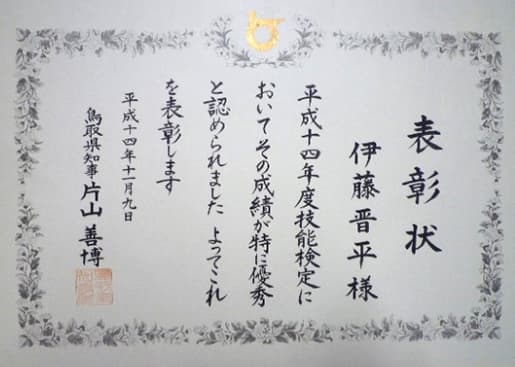 表彰状
伊藤晋平様
平成十四年度技能検定に
おいてその成績が特に優秀
と認められました よってこれ
を表彰します
平成十四年十一月九日
鳥取県知事 片山善博